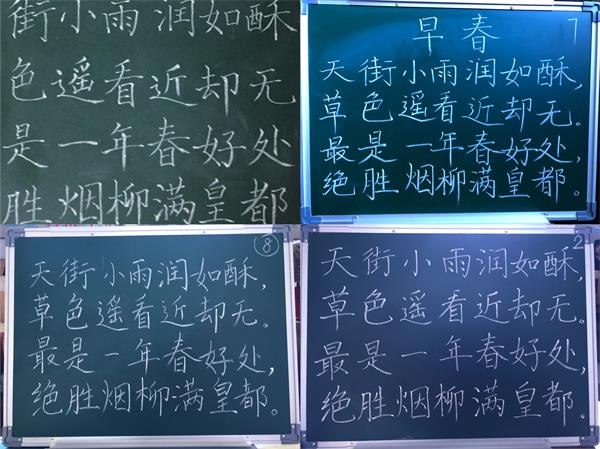 街小雨润如酥
色遥看近却无
是一年春好处
胜烟柳满皇都
早春
7
天街小雨润如酥,
草色遥看近却无。
最是一年春好处,
绝胜烟柳满皇都。
8
天街小雨润如酥,
草色遥看近却无。
最是一年春好处,
绝胜烟柳满皇都。
2
天街小雨润如酥,
草色遥看近却无。
最是一年春好处,
绝胜烟柳满皇都。